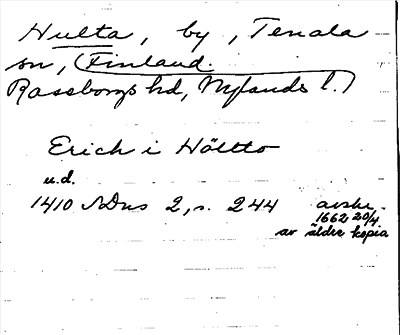 Hulta, by, Tenala
sn, (Finland.
Raseborgs hd, Nylands l.)
Erich i Höltto
u.d.
1410 NDns 2, s. 244 avskr.
1662 20/4
av äldre kopia